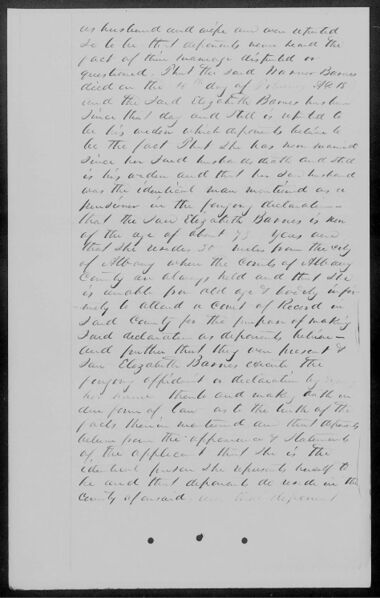 as husband and wife and were reputed
so to be that deponents never heard the
fact of their marriage disputed or
questioned. That the said Warner Barnes
died on the day of
and the said Elizabeth Barnes has been
since that day and still is reputed to
be his widow which deponents believe to
be the fact That she has now married
since her said husbands death and still
is his widow and that her said husband
was the identical man mentioned as a
pensioner in the forgoing declaration
that the said Elizabeth Barnes is now
of the age of about 73 years and
that she resides miles from the city
of Albany where the Courts of Albany
County are always held and that she
is unable from old age & bodily infir-
mity to attend a Court of Record in
said County for the purpose of making
said declaration as deponents believe
and further that they were present &
saw Elizabeth Barnes execute the
forgoing affidavit or declaration by
her name thereto and make oath in
due form of law as to the truth of the
facts therein mentioned and that deponents
believe from the appearance & statements
of the applicant that she is the
identical person she represents herself to
be and that deponents do reside in the
County aforesaid deponent